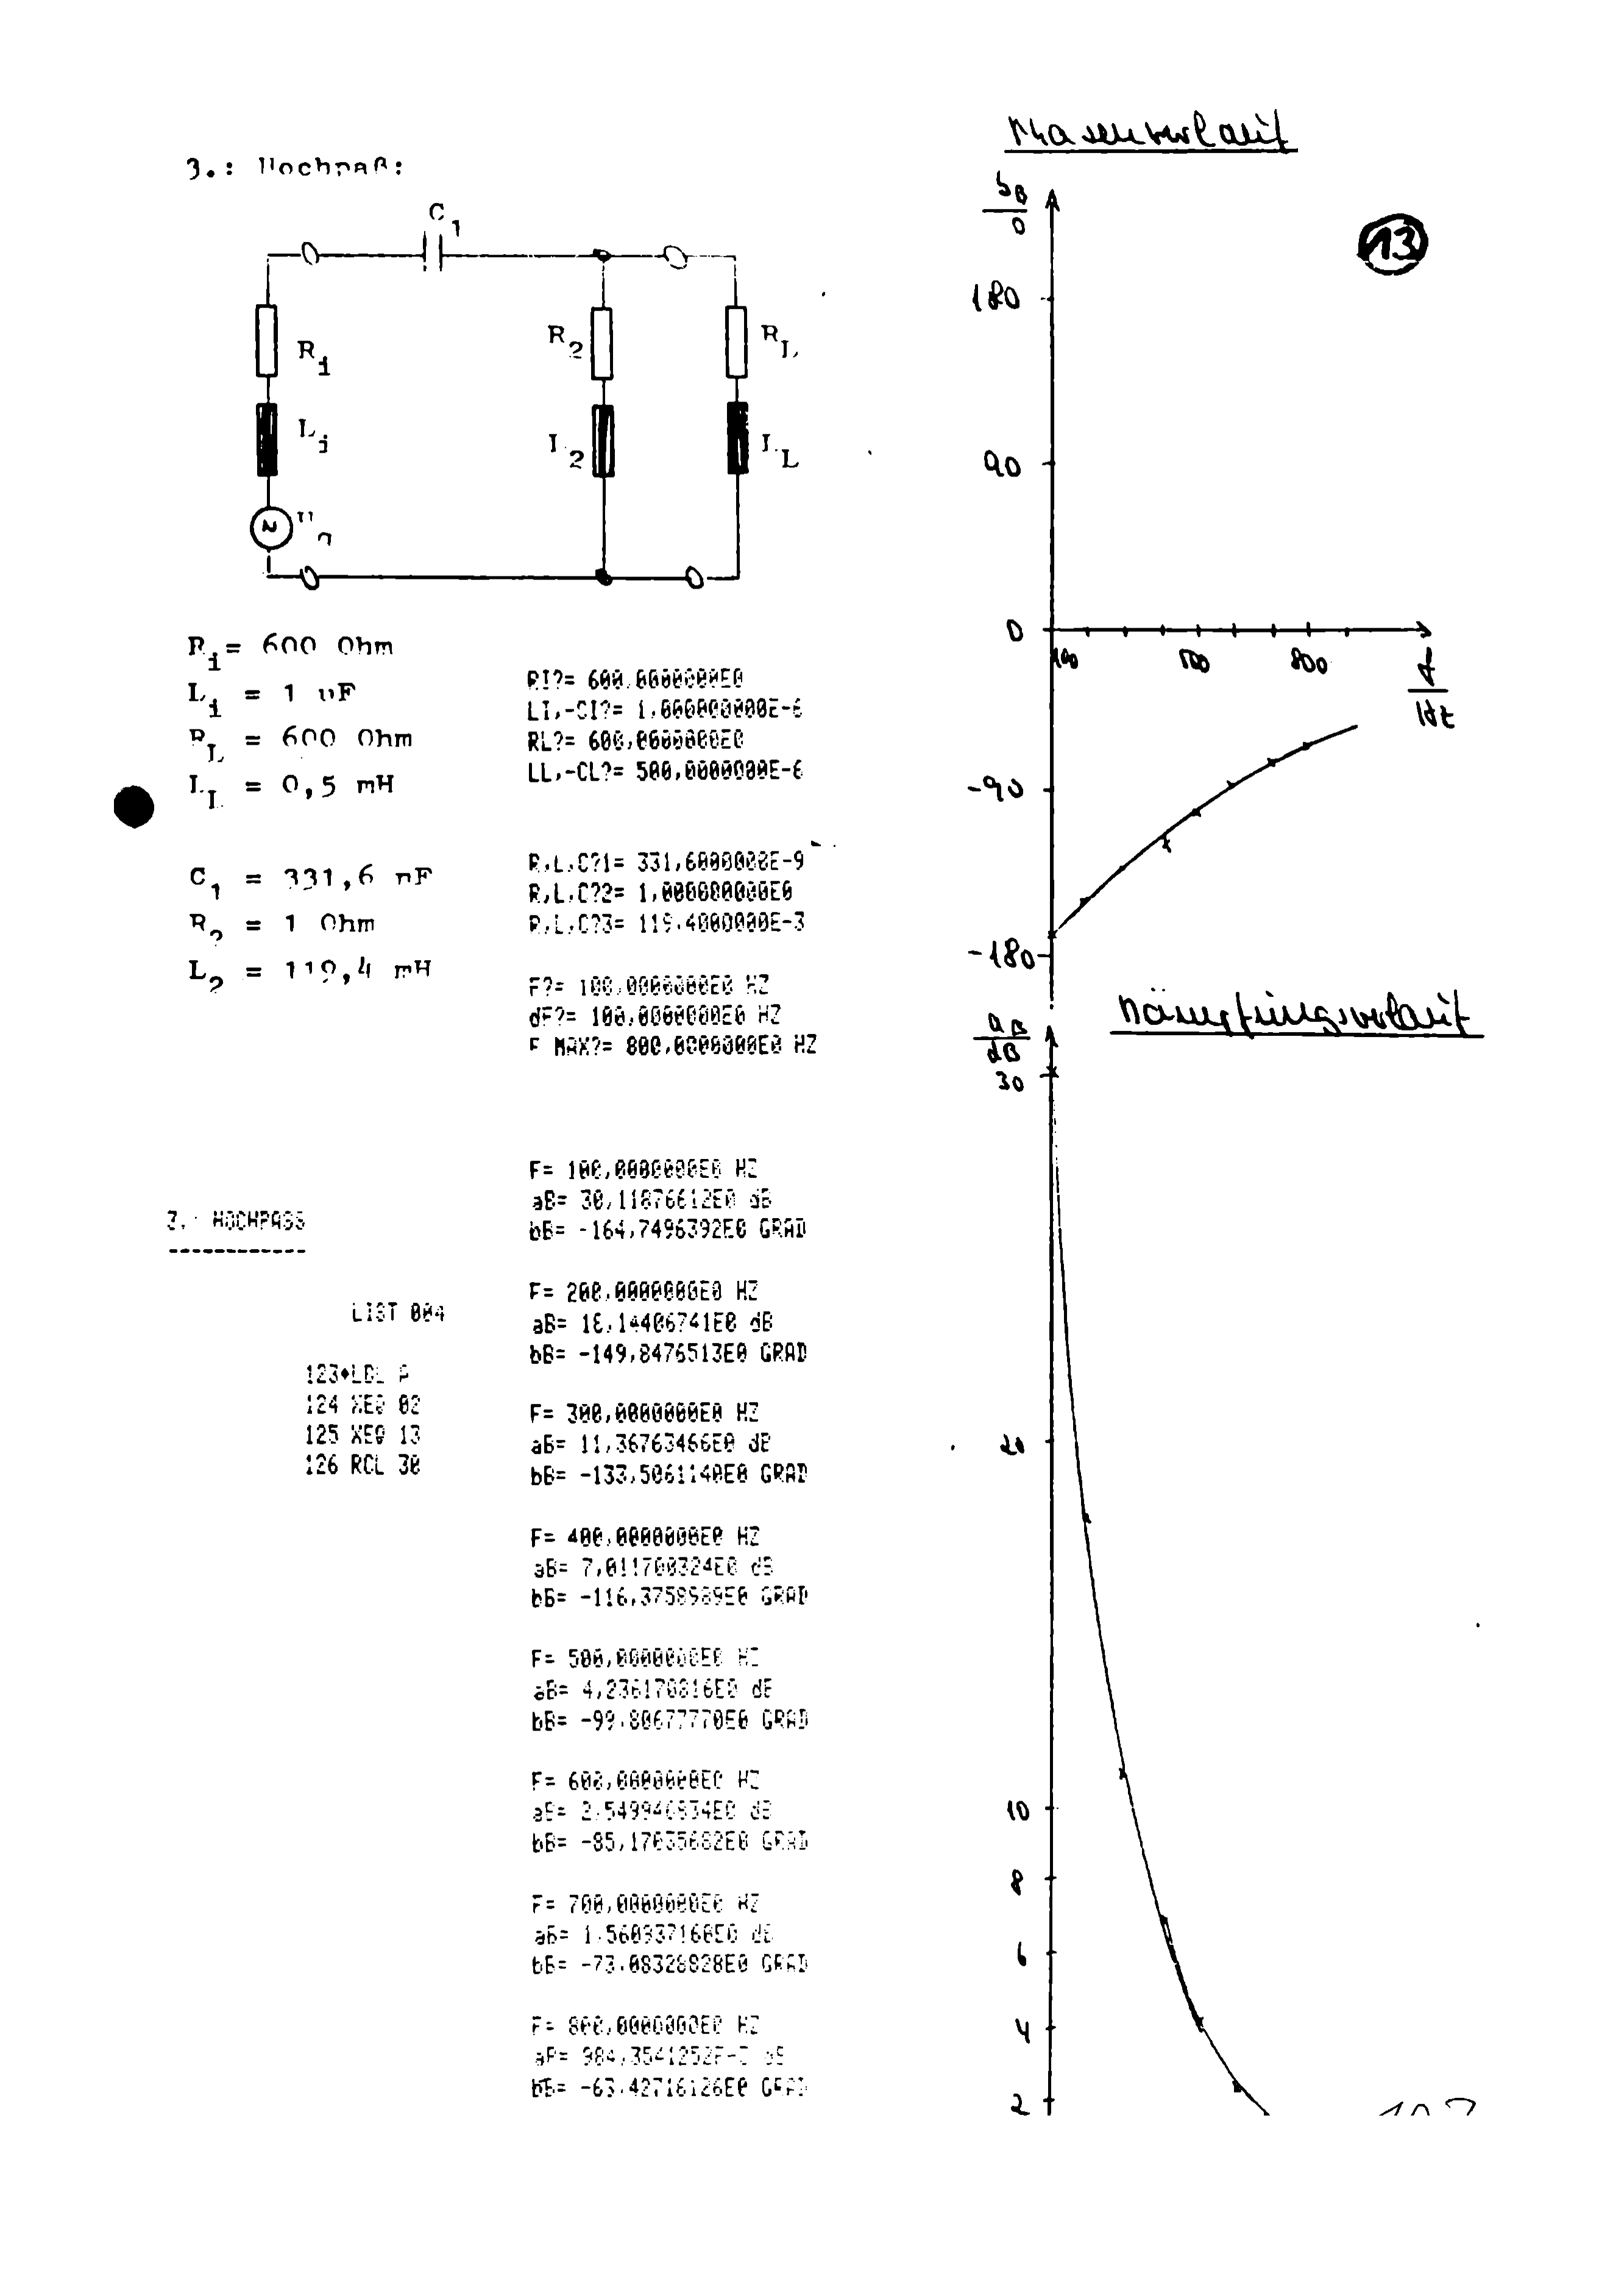 3.: Hochpaß:
C1
Ri
Li
R2
L2
RL
LL
Ri= 600 Ohm
Li = 1 uF
RL = 600 Ohm
LL = 0,5 mH
C1 = 331,6 nF
R2 = 1 Ohm
L2 = 119,4 mH
RI?= 600,0000000E0
LI,-CI?= 1,000000000E-6
RL?= 600,0000000E0
LL,-CL?= 500,0000000E-6
R,L,C?1= 331,6000000E-9
R,L,C?2= 1,000000000E0
R,L,C?3= 119,4000000E-3
F?= 100,0000000E0 HZ
dF?= 100,0000000E0 HZ
F MAX?= 800,0000000E0 HZ
F= 100,0000000E0 HZ
aB= 30,11876612E0 dB
bB= -164,7496392E0 GRAD
F= 200,0000000E0 HZ
aB= 18,14406741E0 dB
bB= -149,8476513E0 GRAD
F= 300,0000000E0 HZ
aB= 11,36763466E0 dB
bB= -133,5061140E0 GRAD
F= 400,0000000E0 HZ
aB= 7,011700324E0 dB
bB= -116,3758989E0 GRAD
F= 500,0000000E0 HZ
aB= 4,236170816E0 dB
bB= -99,80677770E0 GRAD
F= 600,0000000E0 HZ
aB= 2,549946834E0 dB
bB= -85,17035682E0 GRAD
F= 700,0000000E0 HZ
aB= 1,560937160E0 dB
bB= -73,08328828E0 GRAD
F= 800,0000000E0 HZ
aB= 984,3541252E-3 dB
bB= -63,42716126E0 GRAD
3.: HOCHPASS
------------
LIST 004
123♦LBL A
124 XEQ 02
125 XEQ 13
126 RCL 30
Phasenverlauf
13
bB
0
180
90
0
100
500
800
f
Hz
-90
-180
Dämpfungsverlauf
aB
dB
30
20
10
8
6
4
2